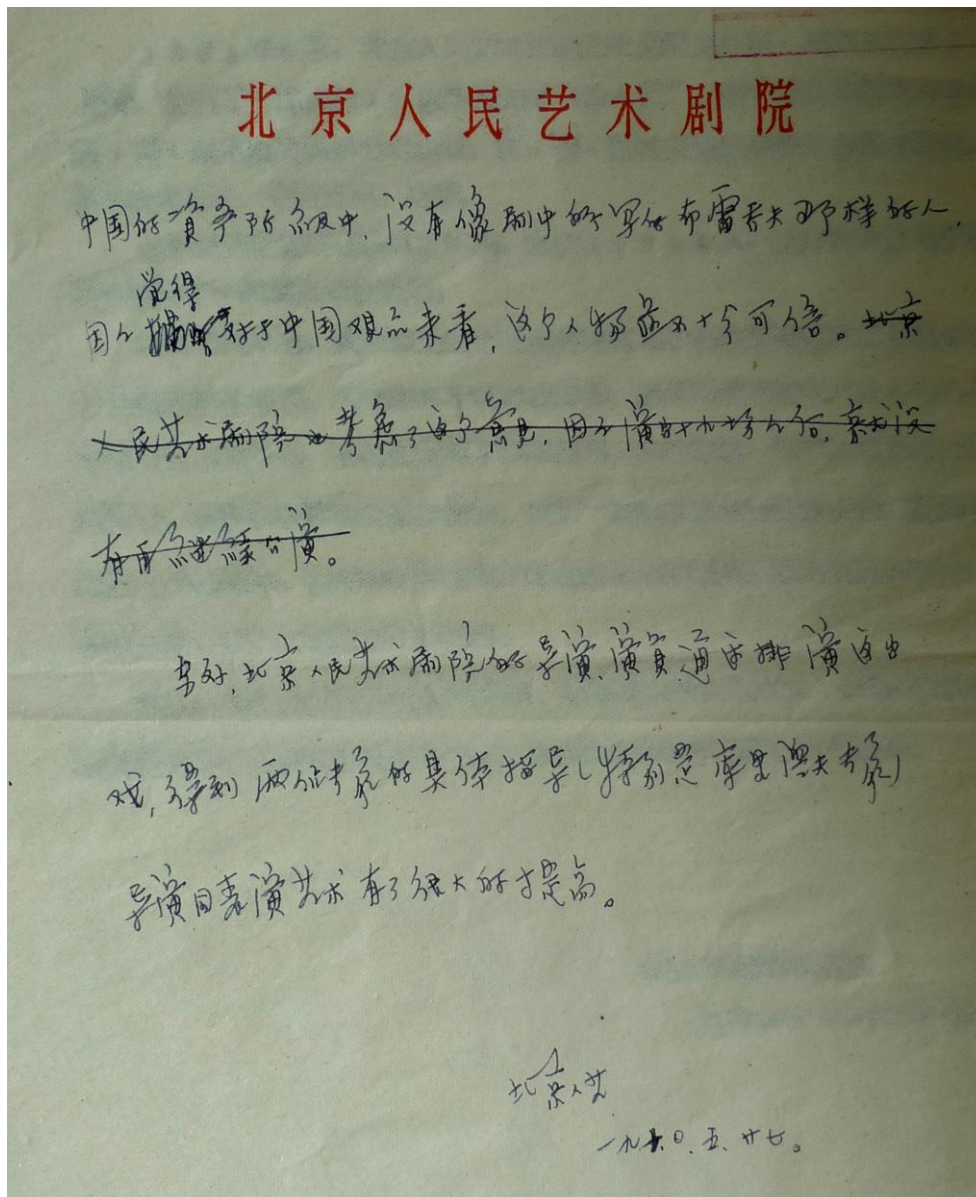 北京人民艺术剧院
中国的资产阶级中，没有像剧中所写的布雷乔夫那样的人，
觉得
因而对于中国观众来看，这个人物并不十分可信。北京
人民艺术剧院也考虑了这个意见，因而演出十九场之后，就没
有再继续公演。
另外，北京人民艺术剧院的导演、演员，通过排演这出
戏，得到两位专家的具体指导（特别是库里涅夫专家）
导演同表演艺术有了很大的提高。
北京人艺
一九六〇、五、廿七。